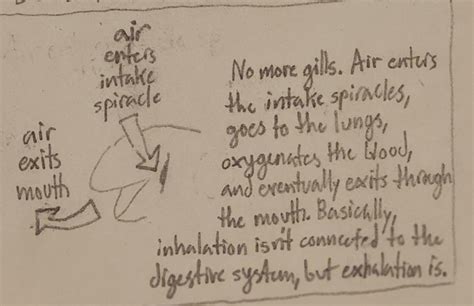 air
enters
intake
spiracle
air
exits
mouth
No more gills. Air enters
the intake spiracles,
goes to the lungs,
oxygenates the blood,
and eventually exits through
the mouth. Basically,
inhalation isn't connected to the
digestive system, but exhalation is.